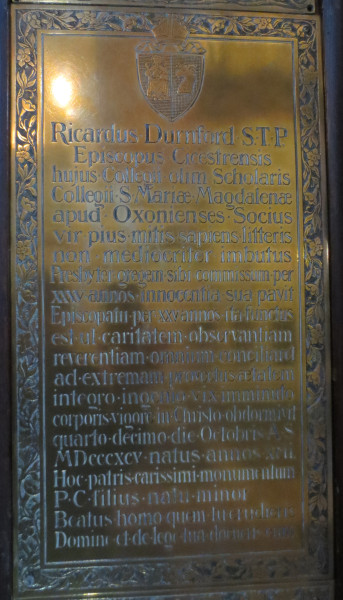 Ricardus Durnford S.T.P
Episcopus Cicestrensis
huius Collegii olim Scholaris
Collegii S. Mariæ Magdalenæ
apud Oxonienses Socius
vir pius mitis sapiens litteris
non mediocriter imbutus
Presbyter gregem sibi commissum per
XXXV annos innocentia sua pavit
Episcopatu per XXV annos ita functus
est ut caritatem observantiam
reverentiam omnium conciliard
ad extremam provectus ætatem
integro ingenio vix imminuto
corporis vigore in Christo obdormivit
quarto decimo die Octobris A.S
MDCCCXCV natus annos
Hoc patris carissimi monumentum
P.C. filius natu minor
Beatus homo quem tu erudieris
Domine et de lege tua docueris eum